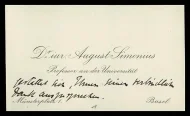 Dr iur August Simonius
Professor an der Universität
gestattet sich, Ihnen seinen verbindlichen
Dank auszusprechen.
Münsterplatz Basel